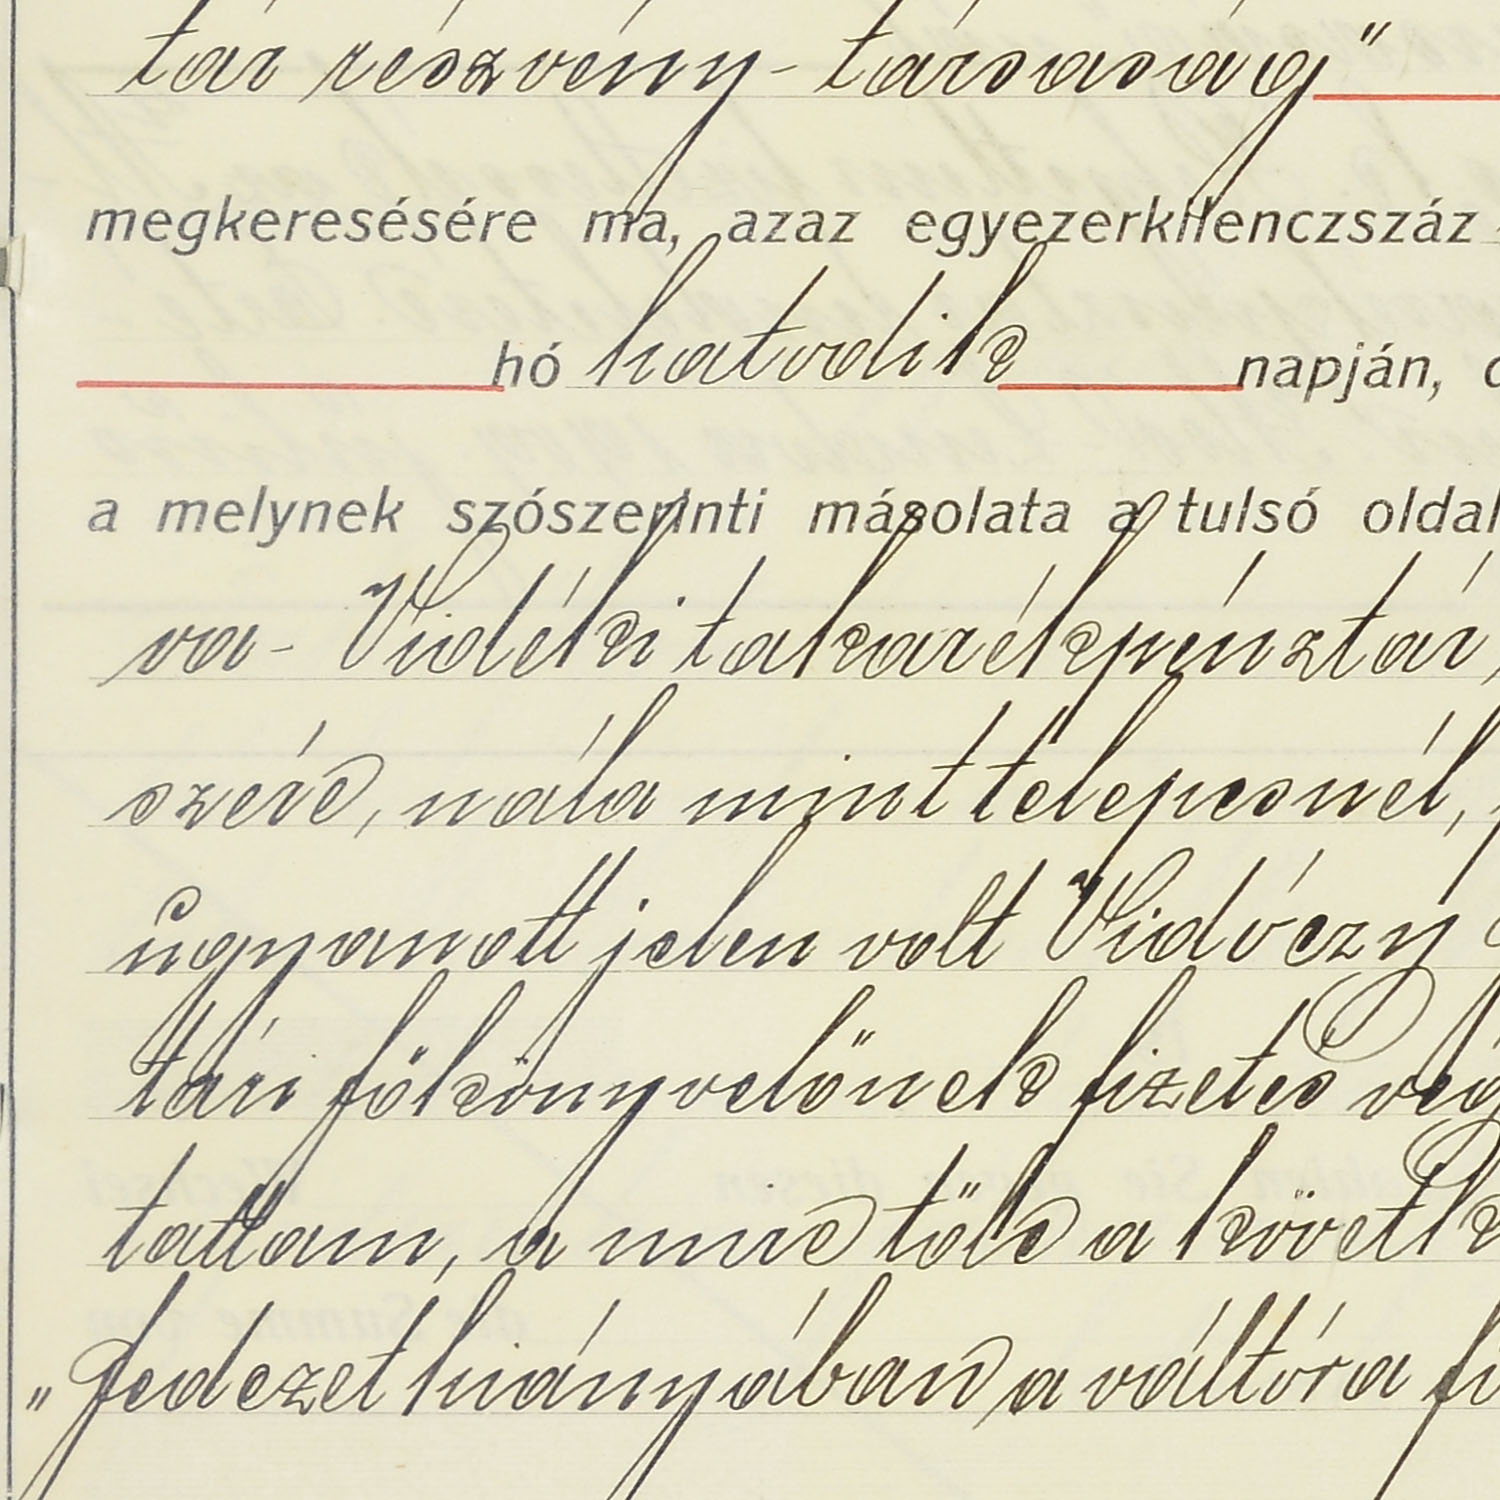 tár részvény-társaság"
megkeresésére ma, azaz egyezerkilenczszáz
hó hatodik napján,
a melynek szószerinti másolata a tulsó oldal
va- Vidéki takarékpénztár,
szére, nála mint telepesnél,
ugyanott jelen volt Vidóczy
tári főkönyvelőnek fizetés vég
tattam, a mire tőle a követk
„Fedezet hiányában a váltóra fi